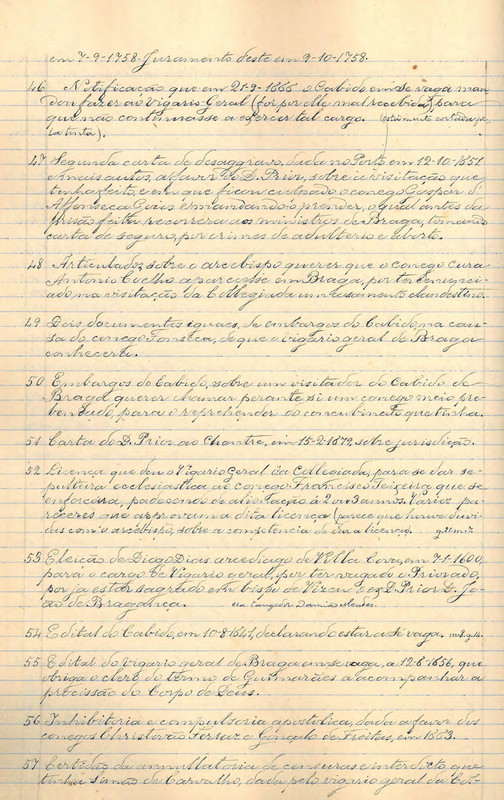 em 7-9-1758. Juramento deste em 9-10-1758.
46 Notificação que em 21-9-1666 o Cabido em se vaga man
dou fazer ao Vigario Geral (foi por elle mal recebida), para
que não continuasse a exercer tal cargo. (está muito cortada pe
la tinta).
47 Segunda carta de desaggravo, dada no Porto em 12-10-1651
e mais autos, a favor do D. Prior, sobre a visitação que
tinha feito, e em que ficou culpado o conego Gaspar d'
Affonseca Goios e mandando-o prender, o qual antes da
prisão feita recorrera aos ministros de Braga, tomando
carta de seguro, por crimes de adulterio e aborto.
48 Articulados sobre o arcebispo querer que o conego cura
Antonio Coelho aparecesse em Braga, por ter denuncia
do na visitação da Collegiada um casamento clandestino.
49 Dois documentos iguaes, de embargos do Cabido, na cau
sa do conego Fonseca, de que o vigario geral de Braga
conhecera.
50 Embargos do Cabido, sobre um visitador do Cabido de
Braga querer chamar perante si um conego meio pre
bendado, para o reprehender do concubinato que tinha.
51 Carta do D. Prior ao Chantre, em 15-2-1672 sobre jurisdicção.
52 Licença que deu o Vigario Geral da Collegiada, para se dar se-
pultura ecclesiastica ao conego Francisco Teixeira que se
enforcára, padecendo de alienação à 2 ou 3 annos. Varios pa-
receres que aprovaram a dita licença (parece que houve duvi-
das com o arcebispo, sobre a competencia de dar a licença).
53 Eleição de Diogo Dias arcediago de Villa Cova, em 7-1-1600,
para o cargo de Vigario geral, por ter vagado o Priorado,
por já estar sagrado em bispo de Vizeu o ex D. Prior D. Jo-
ão de Bragança. era Corregedor Damião Mendes.
54 Edital do Cabido, em 10-8-1641, declarando estar a sé vaga.
55 Edital do Vigario geral de Braga em se vaga, a 12-6-1656, que
obriga o clero do termo de Guimarães a acompanhar a
procissão do Corpo de Deus.
56 Inhibitoria e compulsoria apostolica, dada a favor dos
conegos Christovão Ferraz e Gonçalo de Freitas, em 1663.
57 Certidão da annullatoria de censuras e interdicto que
tinha Simão de Carvalho, dada pelo vigario geral da Col-